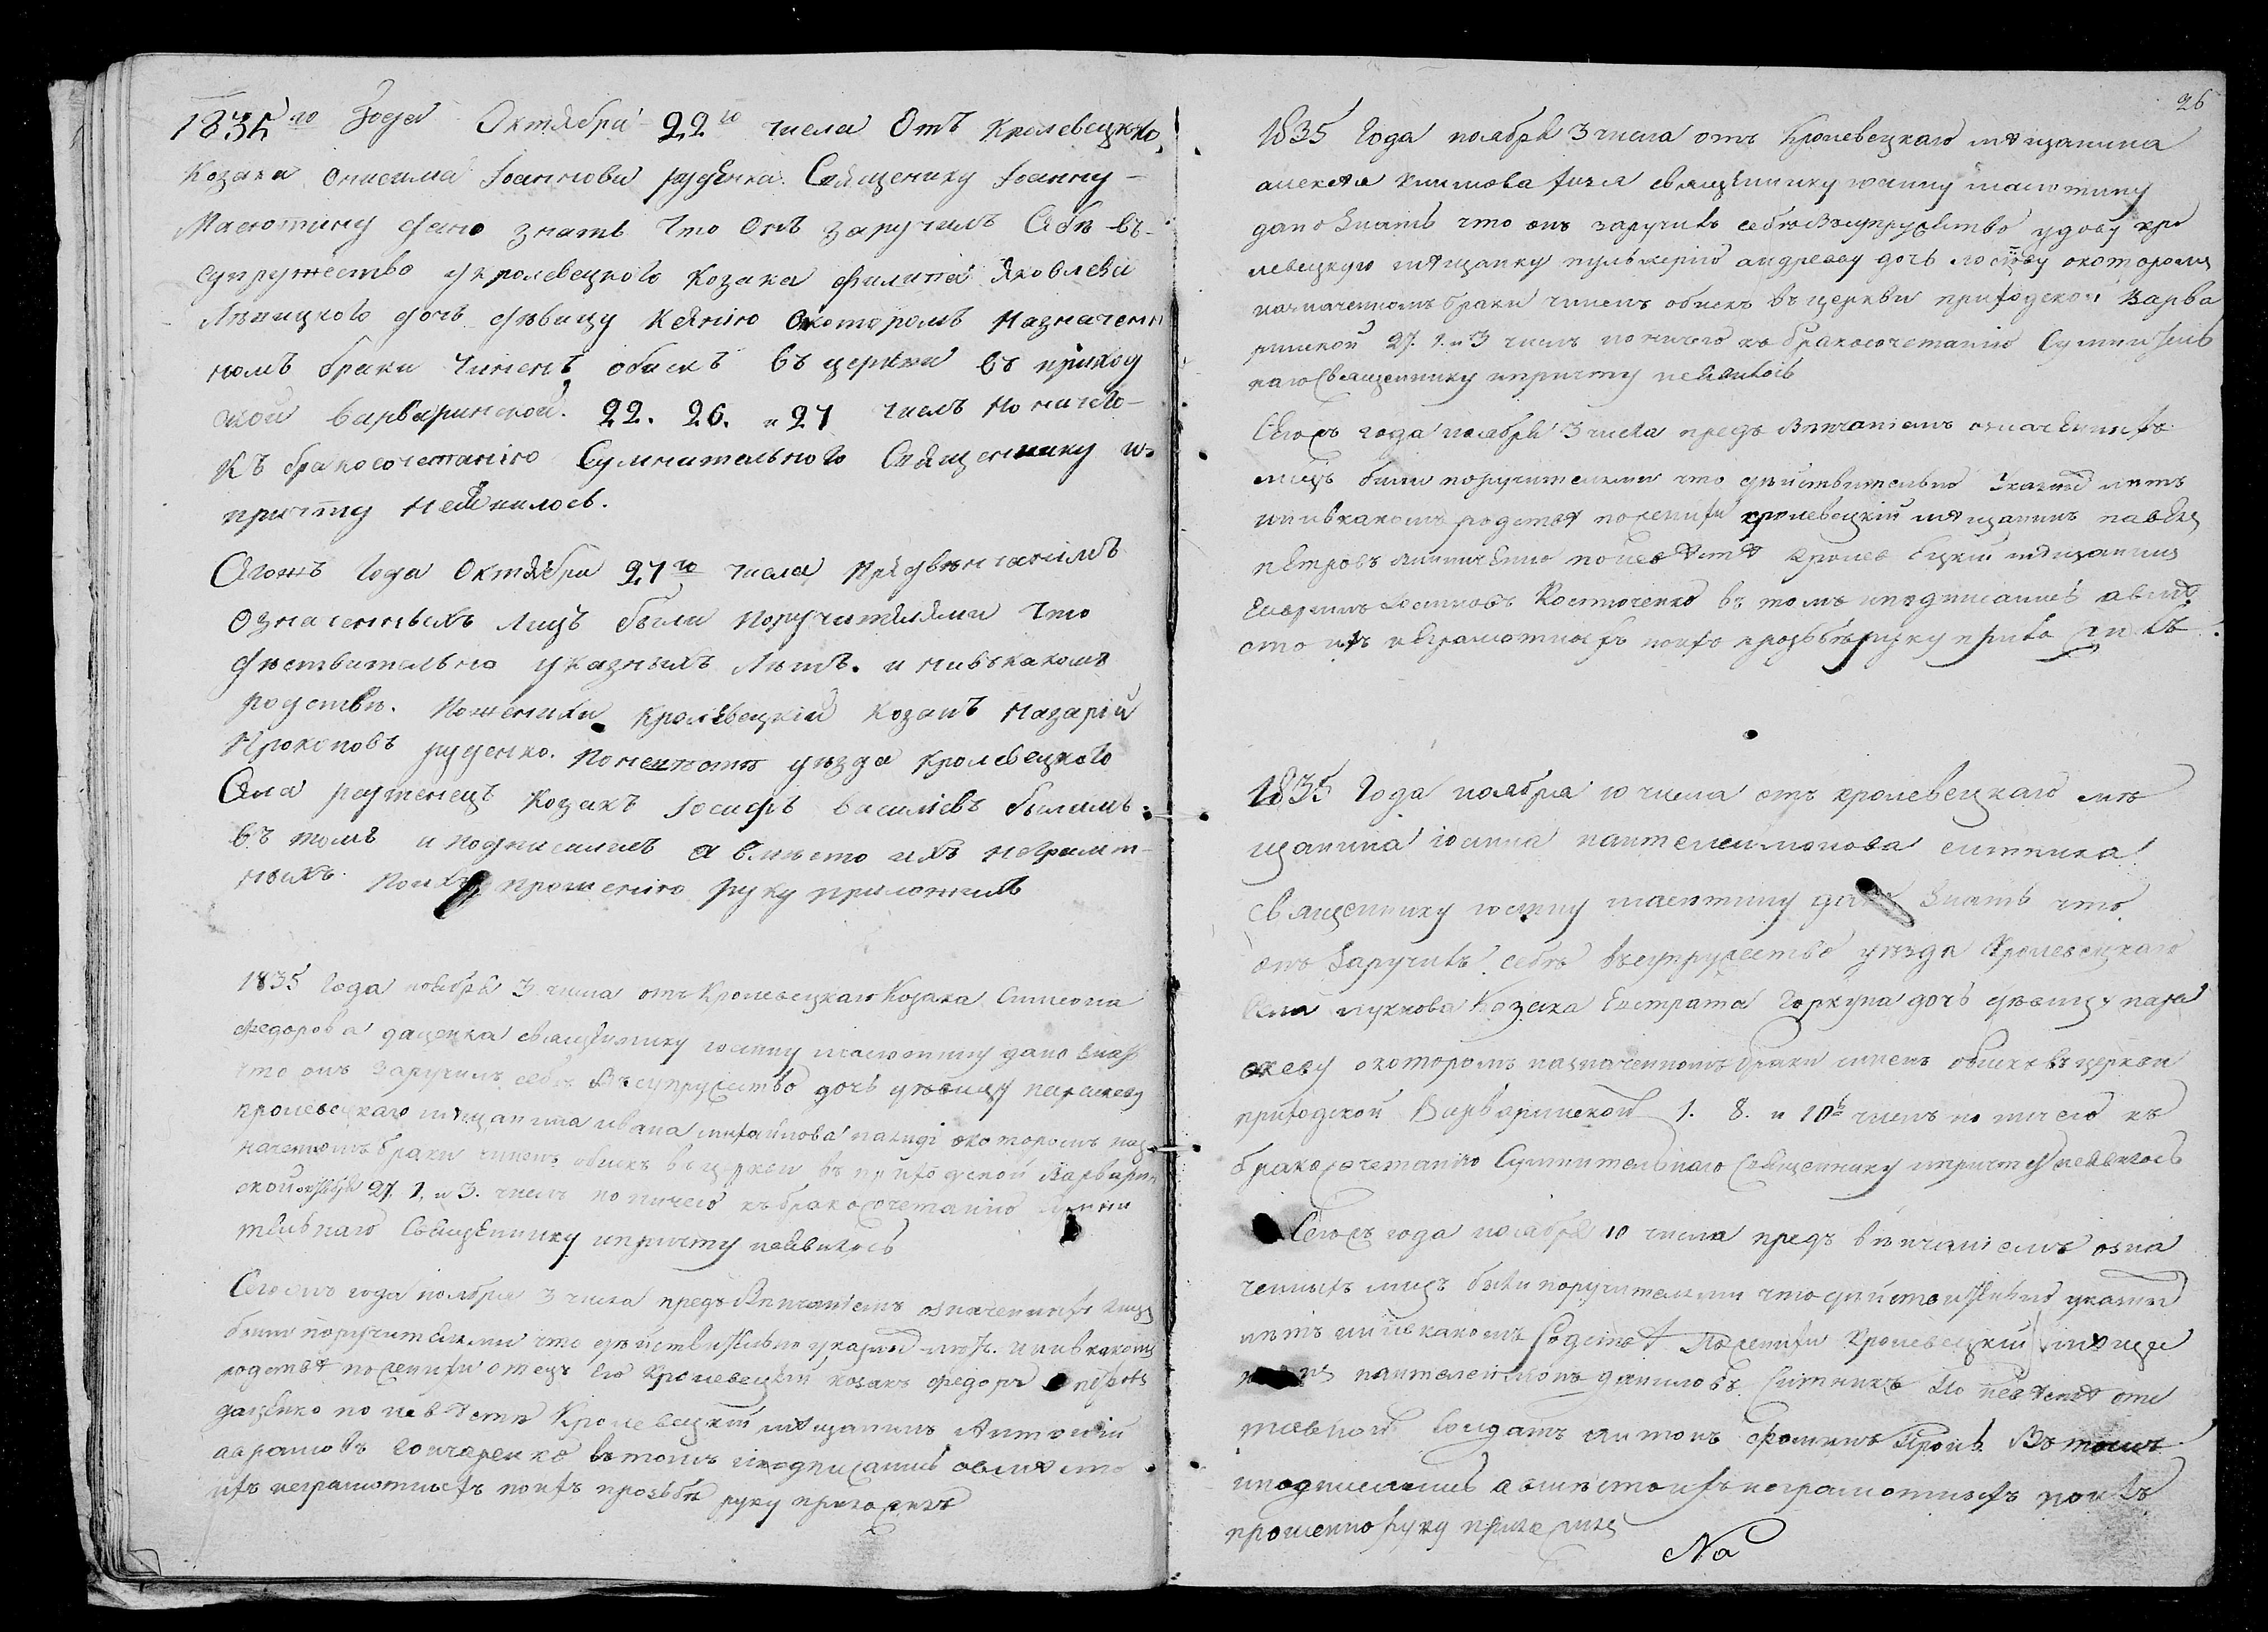 1835го Года Октября 22го числа Отъ Кролевецкого
Козака Онисима Іоаннова руденка. Священику Іоанну
Масютину дано знать Что Онъ заручилъ Себѣ въ
супружество укролевецкого Козака филипа Яковлева
дочь дѣвицу Ксенію Окоторомъ Назначенн
номъ браки Чиненъ обискъ въ церкви въ приход
ской варваринской. 22. 26. и 27 числъ Но ничего
Къ бракосочетанію Сумнительного Священнику и
притту неявилось.
Сегожъ Года Октября 27го числа Предвѣнчаніемъ
Означенныхъ Лицъ были Поручителями Что
дѣствительно указныхъ Лѣтъ. и нивъкакомъ
родствѣ. Поженихи Кролевецкій козакъ Назарій
Прокоповъ руденко. Поневѣсте уѣзда Кролевецкого
Села козакъ Іосифъ василіевъ
въ томъ и подписались а вмѣсто ихъ неграмот
ныхъ Поихъ прошенію руку приложилъ
1835 Года ноября 3 числа отъ Кролевецкаго Козака Симеона
Федорова даценка священнику іоанну масютину дано знать
что онъ заручилъ себѣ Въсупружество дочь дѣвицу параскеву
кролевецкаго мѣщанина ивана михайлова окоторомъ наз
наченомъ браки чиненъ обискъ вцеркви въ приходской Варварин
ской 27. 1. и 3. числъ но ничего къбракосочетанію сумни
тельнаго Священнику ипричту неявилось
Сегожъ года ноября 3 числа предъ Внчаніемъ означенныхъ лицъ
были поручителями что дѣйствительно указно лѣтъ. инивкакомъ
родствѣ поженихи отецъ его Кролевецкій козакъ федоръ
даценко по невѣсте Кролевецкій мѣщанинъ Антоній
авраамовъ гончаренко втомъ иподписались авмѣсто
ихъ неграмотныхъ поихъ прозьбѣ руку приложилъ
26
1835 Года ноября 3 числа отъ Кролевецкаго мѣщанина
алексѣя климова священнику іоанну масютину
дано Знать что онъ заручилъ себѣ Въсупружество удову кро
левецкую мѣщанку пульхерію андрееву дочь окоторомъ
назначенномъ браки чиненъ обискъ въ церкви приходской Варва
ринской 27. 1. и 3 числъ но ничего къ бракосочетанію Сумнитель
наго Священнику ипричту неявилось
Сегожъ года ноября 3 числа предъ Внчаніемъ означенныхъ
лицъ били поручителями что дѣйствительно Указно лѣтъ
инивкакомъ родствѣ поженихи кролевецкій мѣщанинъ павелъ
петровъ поневѣстѣ кролевецкій мѣщанинъ
Костюченко въ томъ иподписались авмѣ
сто ихъ неграмотныхъ поихъ прозьбѣ руку приложилъ
1835 Года ноября 10 числа отъ кролевецкаго мѣ
щанина іоанна пантелеимонова ситника
священнику іоанну масютину дано Знать что
онъ Заручилъ себѣ Въсупружество уѣзда Кролевецкаго
Села Козака Евстрата дочь дѣвицу пара
скеву окоторомъ назначенномъ браки чиненъ обискъ вцеркви
приходской Варваринской 1. 8. и 10 числъ но ничего къ
бракосочетанію Сумнительнаго Священнику ипричту неявилось
Сегожъ года ноября 10 числа предъ внчаніемъ озна
ченныхъ лицъ были поручителями что дѣйствительно указно
лѣтъ инивкакомъ Родствѣ Поженихи Кролевецкій мѣща
пантелеимонъ даниловъ Ситникъ По невѣстѣ отс
тавной солдатъ антонъ Въ томъ
иподписались авмѣстоихънеграмотныхъ поихъ
прошенію руку приложилъ
No